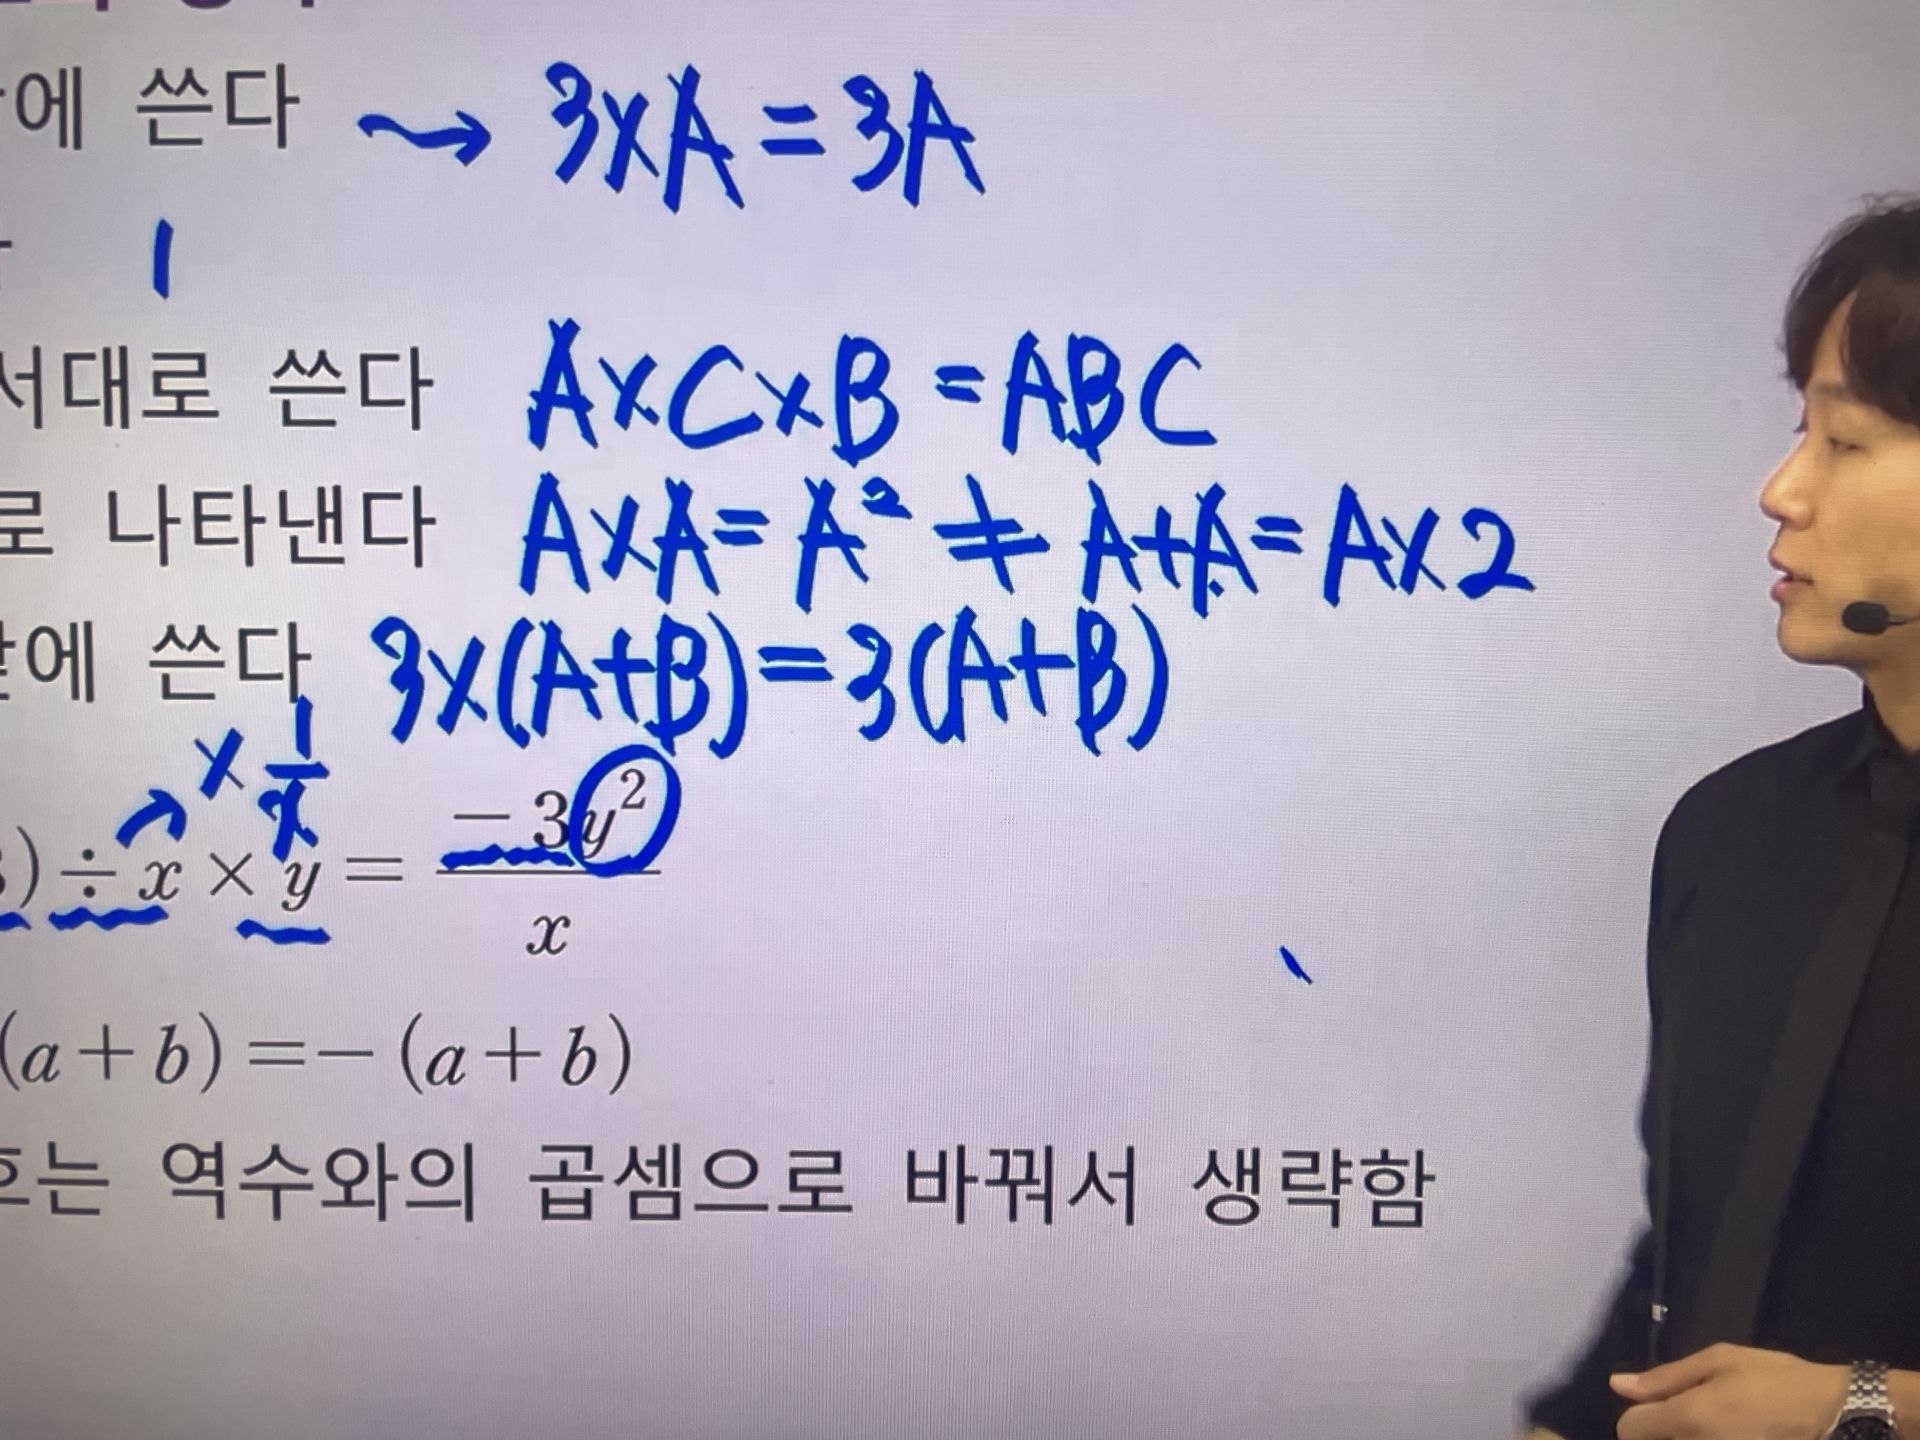 에 쓴다 → 3×A=3A
1
서대로 쓴다 A×C×B=ABC
로 나타낸다 A×A=A² ≠ A+A=A×2
에 쓴다 3×(A+B)=3(A+B)
× 1/x
)÷x×y= −3y²/x
(a+b)=−(a+b)
는 역수와의 곱셈으로 바꿔서 생략함